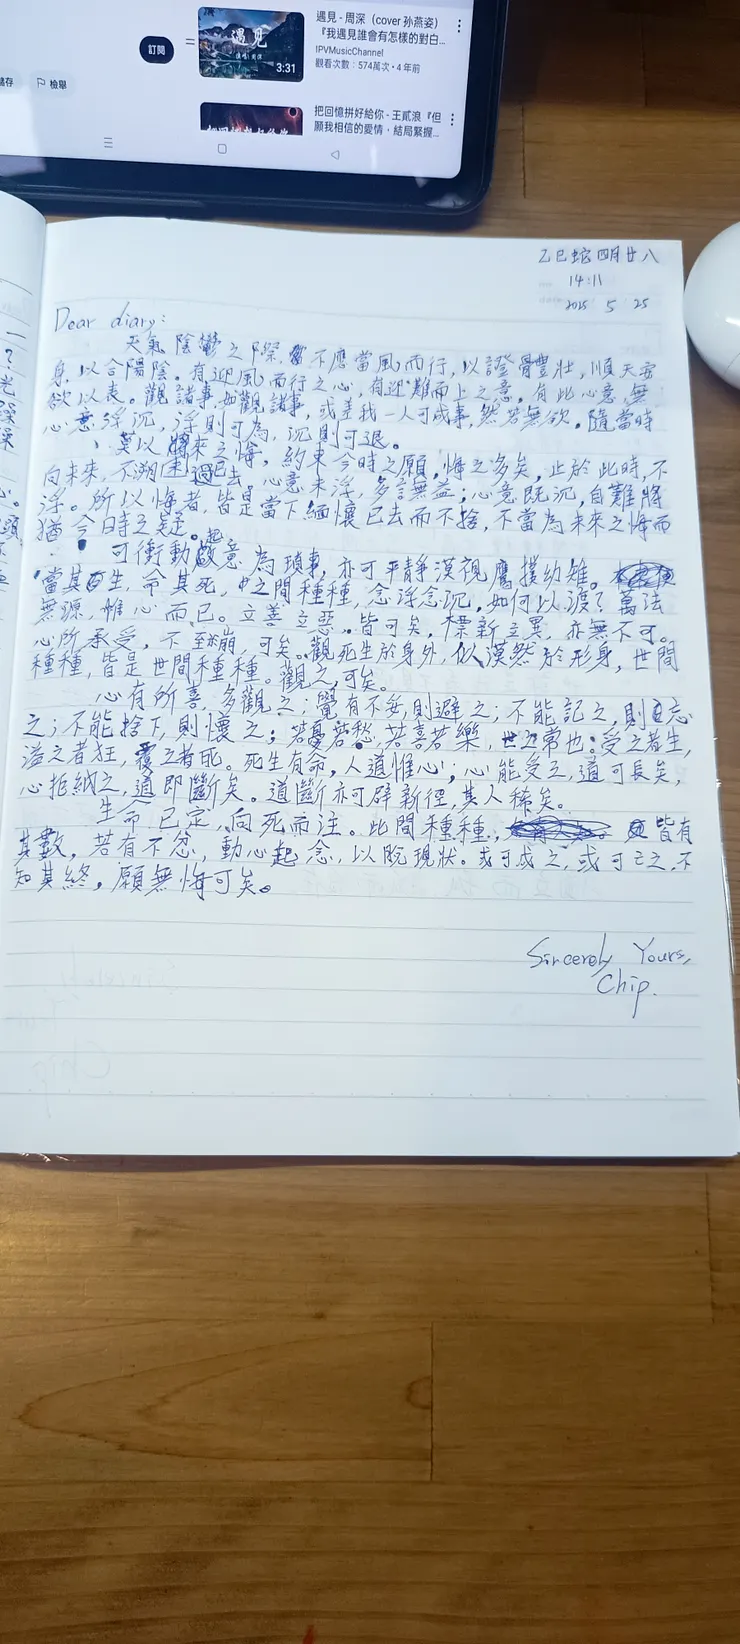 訂閱
儲存
檢舉
遇見
3:31
遇見 - 周深（cover 孙燕姿）
『我遇見誰會有怎樣的對白...
!PVMusicChannel
觀看次數：574萬次・4 年前
把回憶拼好給你 - 王貳浪『但
願我相信的愛情，結局緊握...
乙巳蛇 四月廿八
14:11
2025 5 25
Dear diary:
天氣陰鬱之際，不應當風而行，以證骨豐壯，順天害
身，以合陽陰。有迎風而行之心，有迎難而上之意。有此心意，無
欲以表。觀諸事，如觀諸事，或差我一人可成事，然若無欲。隨當時
心意浮沉，浮則可為，沉則可退。
莫以將來之悔，約束今時之願，悔之多矣，止於此時，不
向未來，不溯過去。心意未浮，多言無益；心意既沉，自難將
浮。所以悔者，皆是當下緬懷已去而不捨，不當為未來之悔而
猶今日時之疑。
可衝動起意為瑣事，亦可平靜漠視鷹撲幼雉。
當其生，命其死，中之間種種，念浮念沉，如何以渡？萬法
無源，惟心而已。立善立惡，皆可矣，標新立異，亦無不可。
心所承受，不致崩，可矣。觀死生於身外，似漠然於形身，世間
種種，皆是世間種種。觀之，可矣。
心有所喜，多觀之；覺有不妥，則避之；不能記之，則忘
之；不能捨下，則懷之；若憂若愁，若喜若樂，世之常也：受之者生，
溢之者狂，覆之者死。死生有命，人道惟心；心能受之，道可長矣，
心拒納之，道即斷矣。道斷亦可辟新徑，其人稀矣。
生命已定，向死而注。此間種種，皆有
其數，若有不忿，動心起念，以脫現狀。或可成之，或可亡之，不
知其終，願無悔可矣。
Sincerely Yours,
Chip.